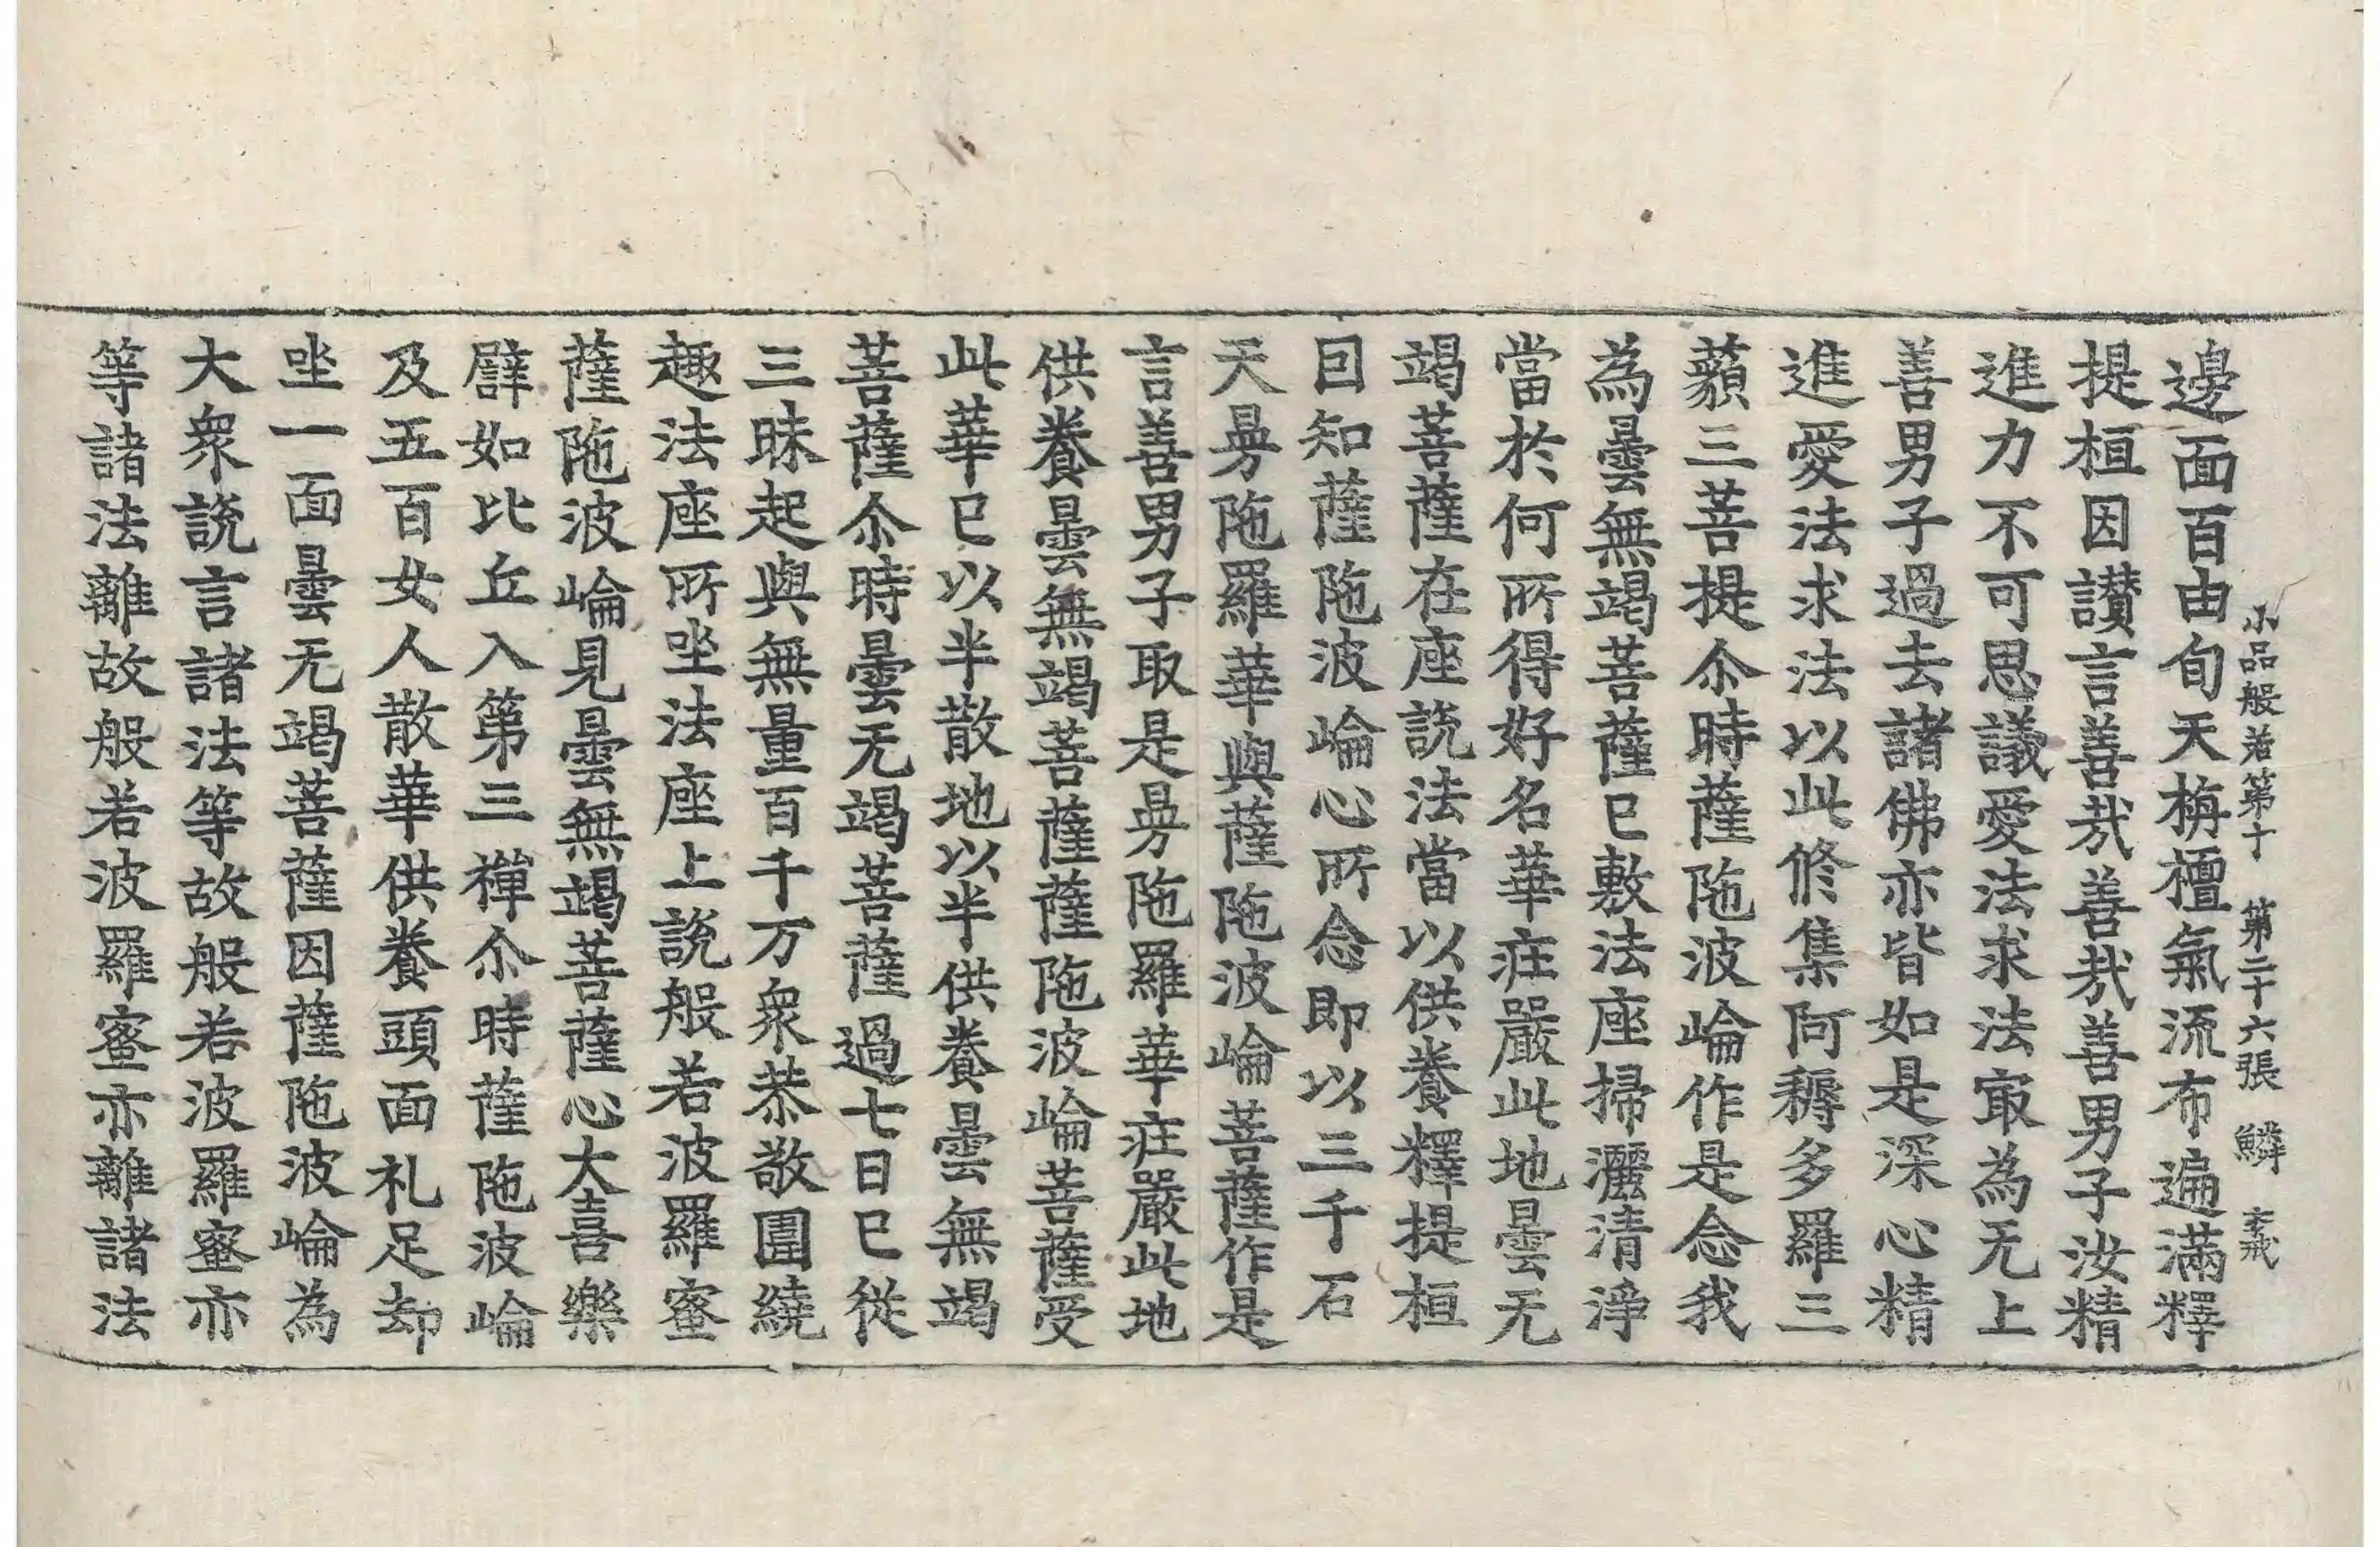 小品般若第十 第二十六張 鱗 玄戒
邊面百由旬天栴檀氣流布遍滿釋
提桓因讃言善㢤善㢤善男子汝精
進力不可思議愛法求法㝡為无上
善男子過去諸佛亦皆如是深心精
進愛法求法以此修集阿耨多羅三
藐三菩提尒時薩陁波崘作是念我
為曇無竭菩薩已敷法座掃灑清淨
當於何所得好名華疘嚴此地曇无
竭菩薩在座說法當以供養釋提桓
囙知薩陁波崘心所念即以三千石
天曼陁羅華與薩陁波崘菩薩作是
言善男子取是曼陁羅華疘嚴此地
供養曇無竭菩薩薩陁波崘菩薩受
此華已以半散地以半供養曇無竭
菩薩尒時曇无竭菩薩過七日已從
三昧起與無量百千万衆恭敬圍繞
趣法座所坐法座上說般若波羅蜜
薩陁波崘見曇無竭菩薩心大喜樂
譬如比丘入第三禪尒時薩陁波崘
及五百女人散華供養頭面礼足却
坐一面曇无竭菩薩因薩陁波崘為
大衆說言諸法等故般若波羅蜜亦
等諸法離故般若波羅蜜亦離諸法